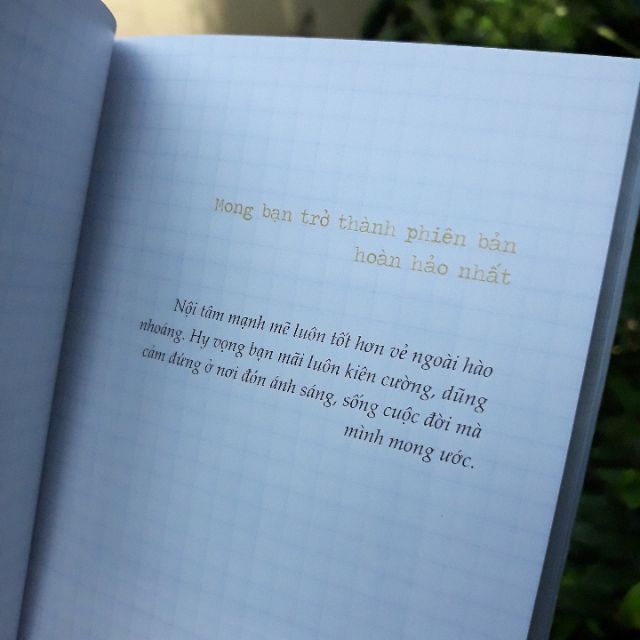 Mong bạn trở thành phiên bản
hoàn hảo nhất
Nội tâm mạnh mẽ luôn tốt hơn vẻ ngoài hào
nhoáng. Hy vọng bạn mãi luôn kiên cường, dũng
cảm đứng ở nơi đón ánh sáng, sống cuộc đời mà
mình mong ước.